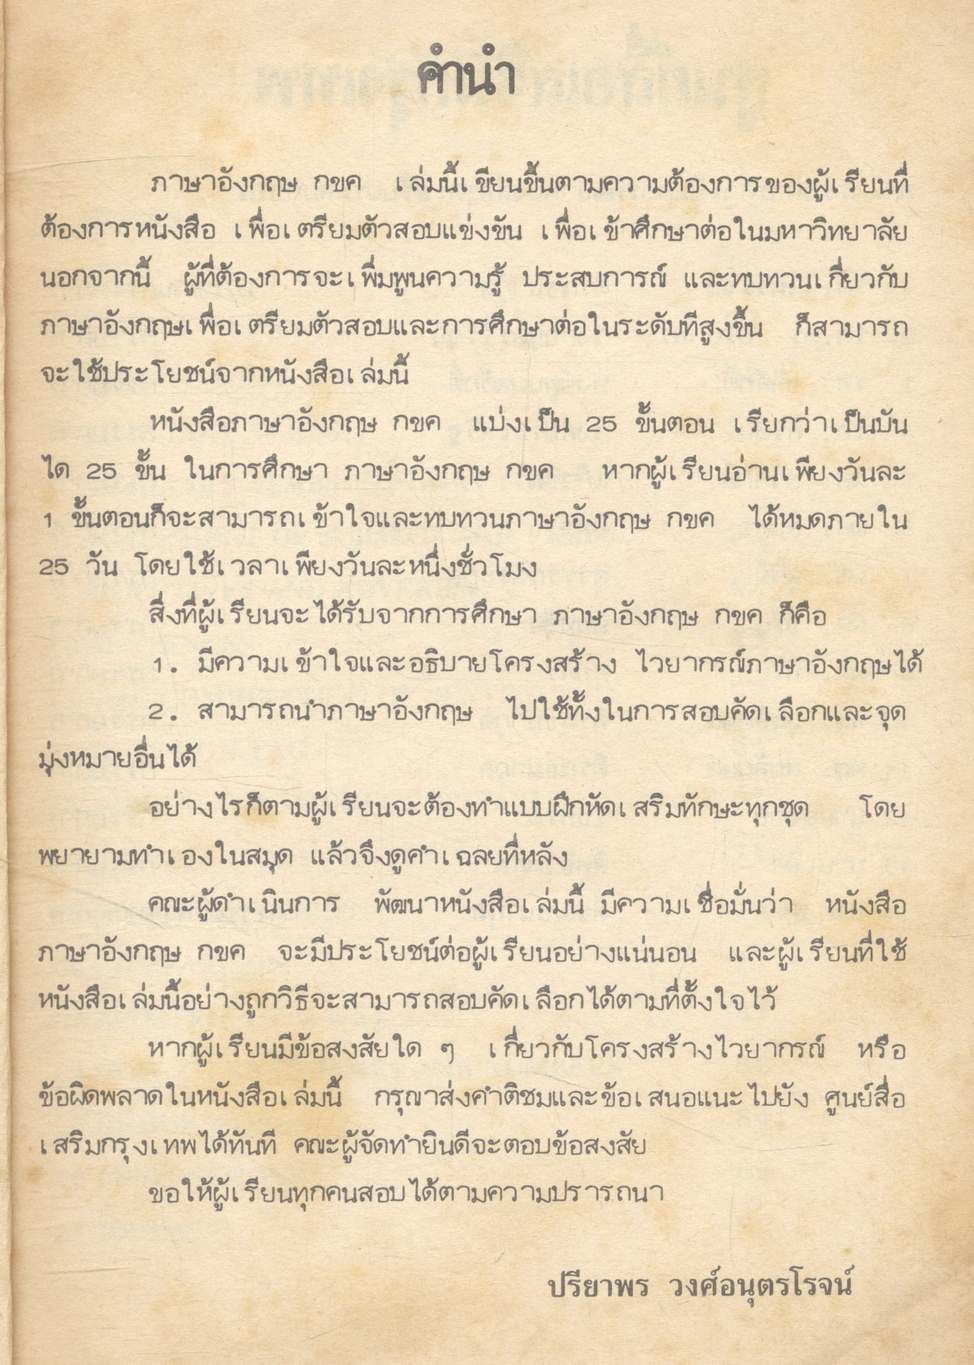 คำนำ
ภาษาอังกฤษ กขค เล่มนี้เขียนขึ้นตามความต้องการของผู้เรียนที่
ต้องการหนังสือ เพื่อเตรียมตัวสอบแข่งขัน เพื่อเข้าศึกษาต่อในมหาวิทยาลัย
นอกจากนี้ ผู้ที่ต้องการจะเพิ่มพูนความรู้ ประสบการณ์ และทบทวนเกี่ยวกับ
ภาษาอังกฤษเพื่อเตรียมตัวสอบและการศึกษาต่อในระดับที่สูงขึ้น ก็สามารถ
จะใช้ประโยชน์จากหนังสือเล่มนี้
หนังสือภาษาอังกฤษ กขค แบ่งเป็น 25 ขั้นตอน เรียกว่าเป็นบัน
ได 25 ขั้น ในการศึกษา ภาษาอังกฤษ กขค หากผู้เรียนอ่านเพียงวันละ
1 ขั้นตอนก็จะสามารถเข้าใจและทบทวนภาษาอังกฤษ กขค ได้หมดภายใน
25 วัน โดยใช้เวลาเพียงวันละหนึ่งชั่วโมง
สิ่งที่ผู้เรียนจะได้รับจากการศึกษา ภาษาอังกฤษ กขค ก็คือ
1. มีความเข้าใจและอธิบายโครงสร้าง ไวยากรณ์ภาษาอังกฤษได้
2. สามารถนำภาษาอังกฤษ ไปใช้ทั้งในการสอบคัดเลือกและจุด
มุ่งหมายอื่นได้
อย่างไรก็ตามผู้เรียนจะต้องทำแบบฝึกหัดเสริมทักษะทุกชุด โดย
พยายามทำเองในสมุด แล้วจึงดูคำเฉลยทีหลัง
คณะผู้ดำเนินการ พัฒนาหนังสือเล่มนี้ มีความเชื่อมั่นว่า หนังสือ
ภาษาอังกฤษ กขค จะมีประโยชน์ต่อผู้เรียนอย่างแน่นอน และผู้เรียนที่ใช้
หนังสือเล่มนี้อย่างถูกวิธีจะสามารถสอบคัดเลือกได้ตามที่ตั้งใจไว้
หากผู้เรียนมีข้อสงสัยใด ๆ เกี่ยวกับโครงสร้างไวยากรณ์ หรือ
ข้อผิดพลาดในหนังสือเล่มนี้ กรุณาส่งคำติชมและข้อเสนอแนะไปยัง ศูนย์สื่อ
เสริมกรุงเทพได้ทันที คณะผู้จัดทำยินดีจะตอบข้อสงสัย
ขอให้ผู้เรียนทุกคนสอบได้ตามความปรารถนา
ปรียาพร วงศ์อนุตรโรจน์